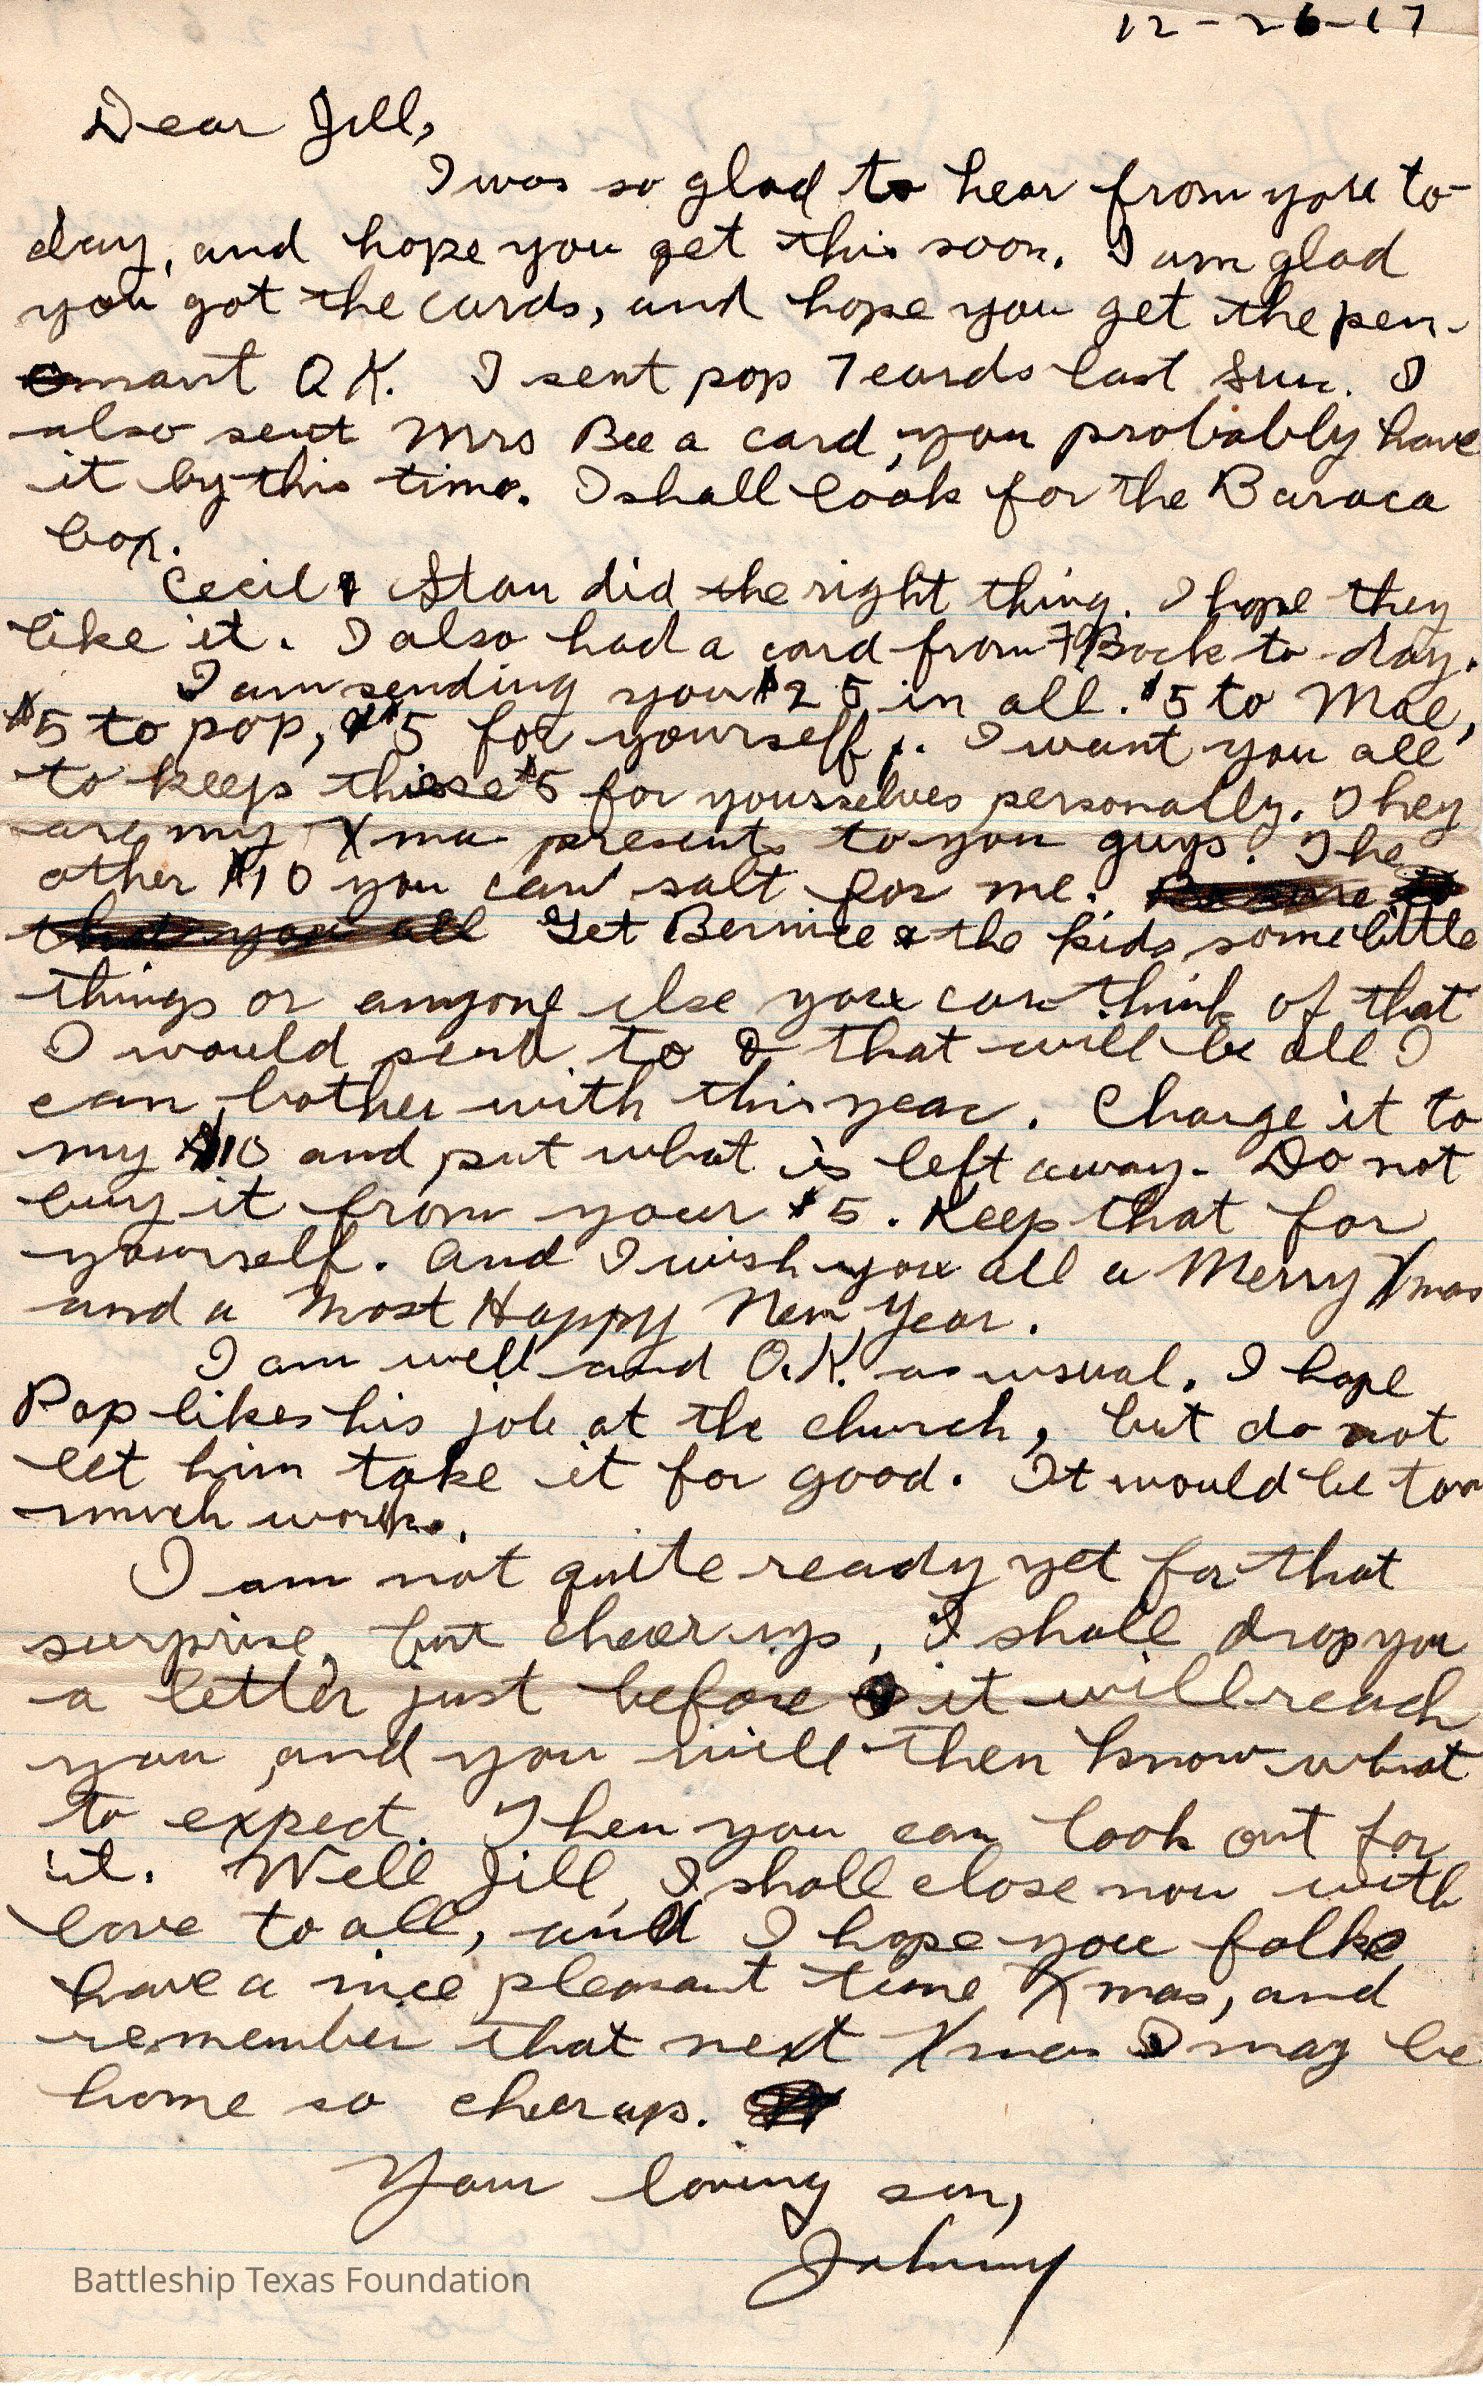 12-26-17
Dear Jill,
I was so glad to hear from you to-
day, and hope you get this soon. I am glad
you got the cards, and hope you get the pen-
nant O K. I sent pop 7 cards last Sun. I
also sent Mrs Bee a card, you probably have
it by this time. I shall look for the Baraca
box.
Cecil & Stan did the right thing. I hope they
like it. I also had a card from Back to-day.
I am sending you $25 in all. $5 to Mae,
$5 to pop, & $5 for yourself. I want you all
to keep these $5 for yourselves personally. They
are my Xmas presents to you guys. The
other $10 you can salt for me. Be sure to
that you all Get Bernice & the kids some little
things or anyone else you can think of that
I would send to & that will be all I
can bother with this year. Charge it to
my $10 and put what is left away. Do not
buy it from your $5. Keep that for
yourself. And I wish you all a Merry Xmas
and a most Happy New Year.
I am well and O.K. as usual. I hope
Pop likes his job at the church, but do not
let him take it for good. It would be too
much work.
I am not quite ready yet for that
surprise, but cheer up, I shall drop you
a letter just before it will reach
you, and you will then know what
to expect. Then you can look out for
it. Well Jill, I shall close now with
love to all, and I hope you folks
have a nice pleasant time Xmas, and
remember that next Xmas I may be
home so cheer up.
Your loving son,
Johnny
Battleship Texas Foundation